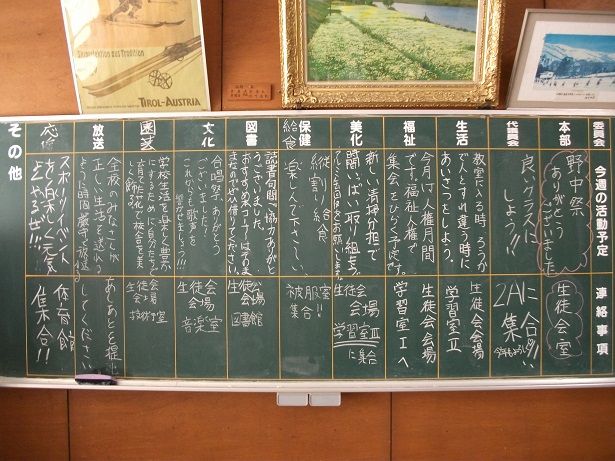 Skikollektion aus Tradition
TIROL-AUSTRIA
委員会
今週の活動予定
連絡事項
本部
野中祭
ありがとう
ございました
生徒会室
代議会
良いクラスに
しよう!!
2Aに
集合!!
生活
教室に入る時 ろうか
で人とすれ違う時に
あいさつをしよう。
生徒会会場
学習室Ⅱ
福祉
今月は人権月間
です。福祉人権で
集会をひらく予定です。
生徒会会場
学習室Ⅰへ
美化
新しい清掃分担で
精いっぱい取り組もう
生徒会
会場
学習室Ⅲ
に集合
保健
給食
縦割り給食
楽しんで下さい。
被服室
集合!!
図書
読書旬間ご協力ありがと
うございました。
おすすめのコーナーはそのま
まなのでぜひ借りてください。
生徒会会場
図書館
文化
合唱祭、ありがとう
ございました!
これからも歌声を
響かせましょう
生徒会
会場
音楽室
園芸
学校生活を楽しく豊か
にするために自分たちで
育てた花で校舎を美し
く飾ろう
生徒会
会場
技術室
放送
全校のみなさんが
正しい生活を送れる
ように時間厳守で放送
しよう
あしあとを提出
してください
応援
スポーツイベント
を明るく元気
にやるぜ!!!
体育館
集合!!
その他